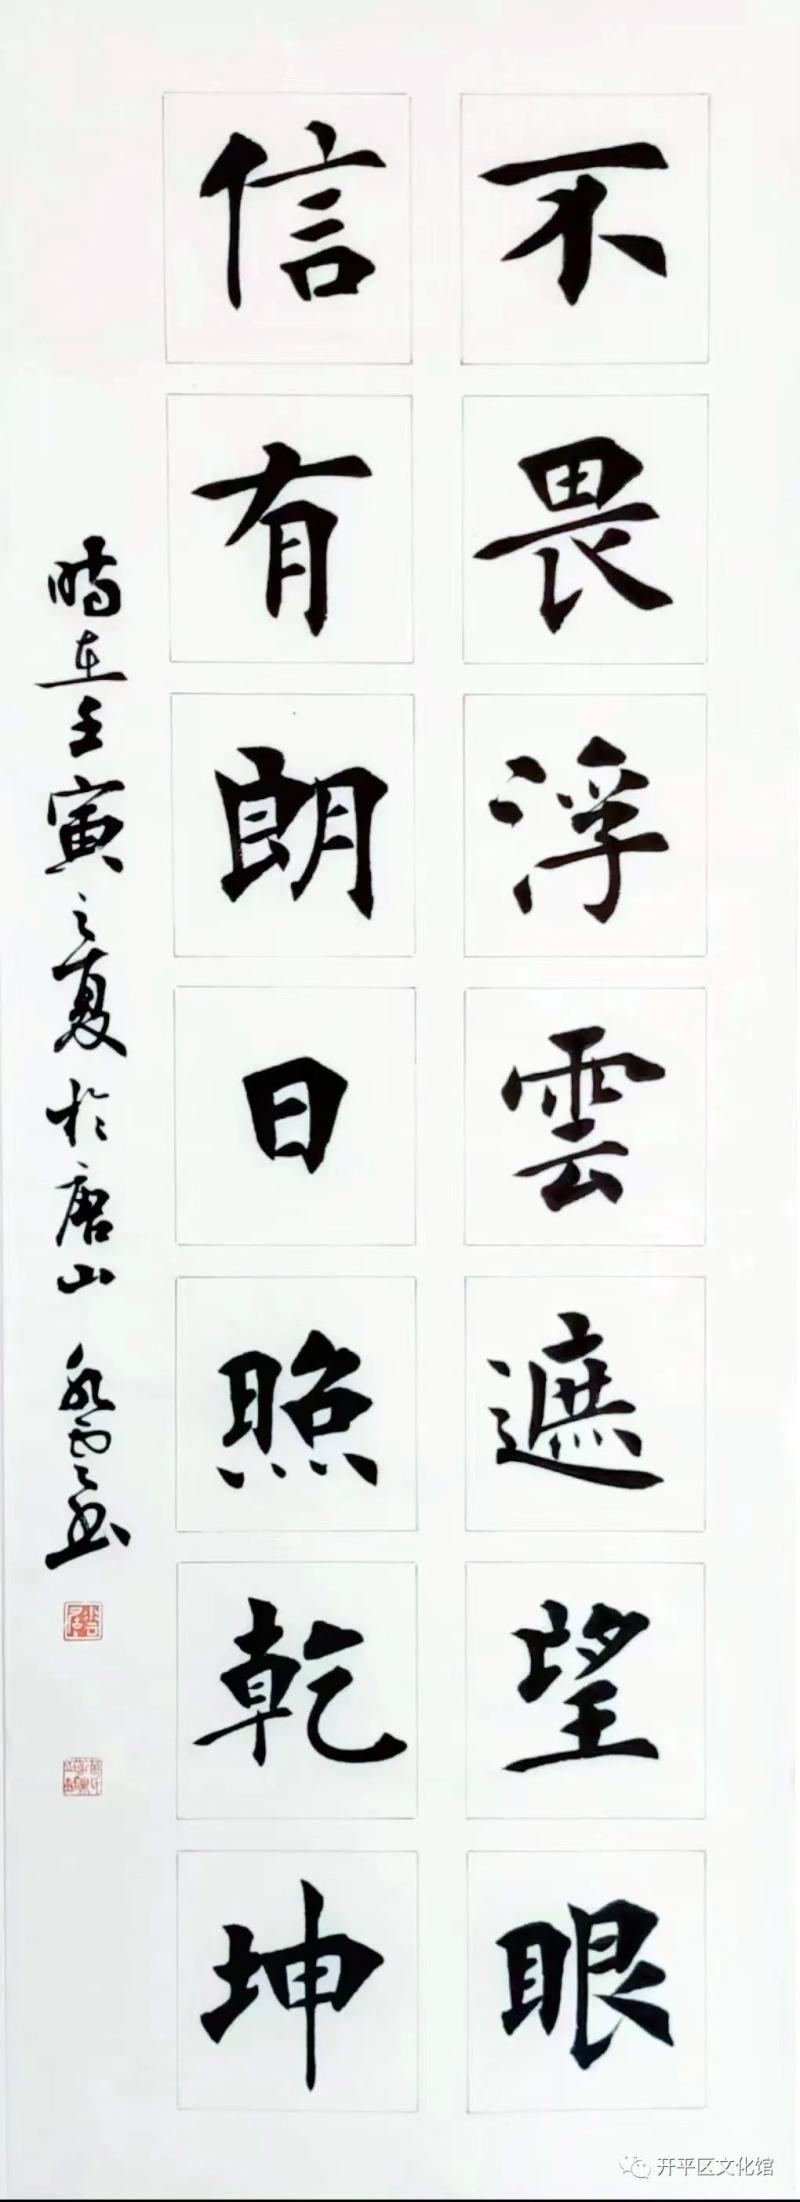 不畏浮雲遮望眼
信有朗日照乾坤
時在壬寅之夏於唐山
开平区文化馆